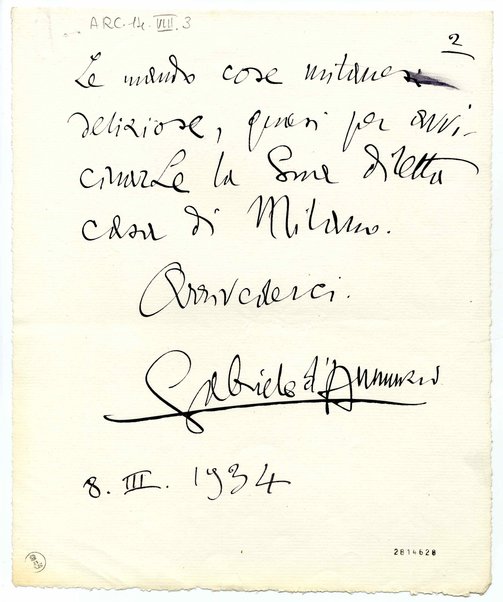 ARC.14.VIII.3
2
Le mando cose milanesi
deliziose, quasi per avvi-
cinarLe la Sua diletta
casa di Milano.
Arrivederci.
Gabriele d'Annunzio
8. III. 1934
2814628